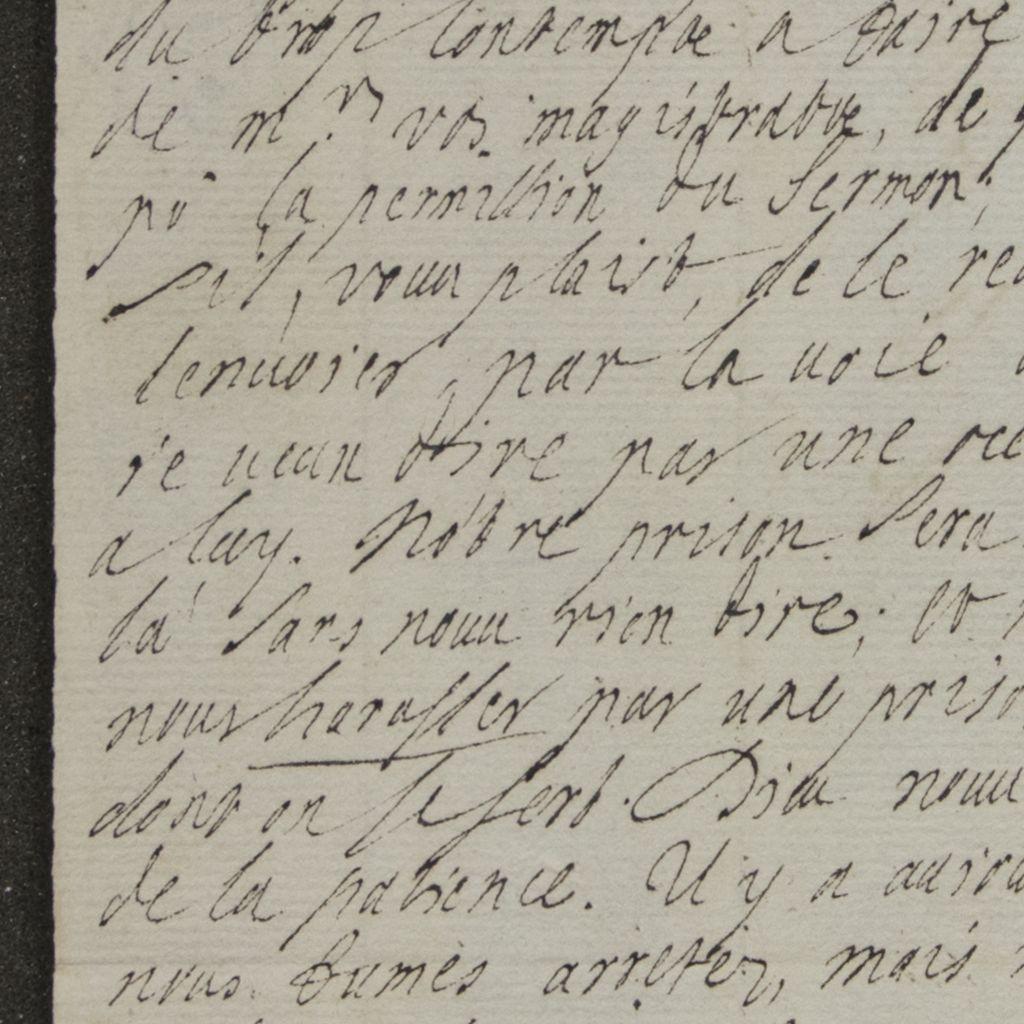 du trop contempde a faire
de mrs vos magistratts, de
po la permission du sermon;
s'il, vous plaist, de le
l'envoier, par la voie
re veux dire par une occ
a luy. Nôtre prison Sera
là Sans nous rien dire; et
nous harasser par une priso
dont on se sert. Dieu nous
de la patience. Il y a aujou
nous fumes arretéz, mais